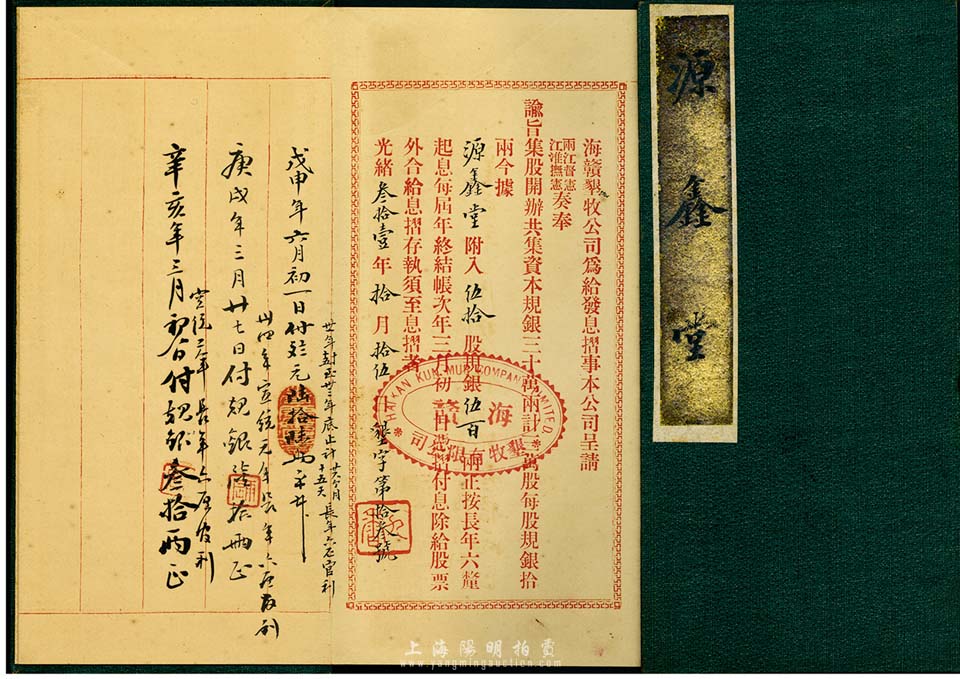 源鑫堂
海贛墾牧公司爲給發息摺事本公司呈請
兩江督憲
江淮撫憲奏奉
諭旨集股開辦共集資本規銀三十萬兩計一萬股每股規銀拾
兩今據
源鑫堂附入伍拾股規銀伍百兩正按長年六釐
起息每屆年終結帳次年三月初一日憑摺付息除給股票
外合給息摺存執須至息摺者
光緒叁拾壹年拾月拾伍日墾字第拾叁號
HAIKAN KUN MUH COMPANY LIMITED
海贛
墾牧有限公司
戊申年六月初一日付
陸拾陸兩
廿六个月十五天
長年六厘官利
庚戌年三月廿七日付規銀陸拾兩正
宣統元年
辛亥年三月初一日付規銀叁拾兩正
宣統二年長年六厘官利
上海陽明拍賣
www.yangmingauction.com